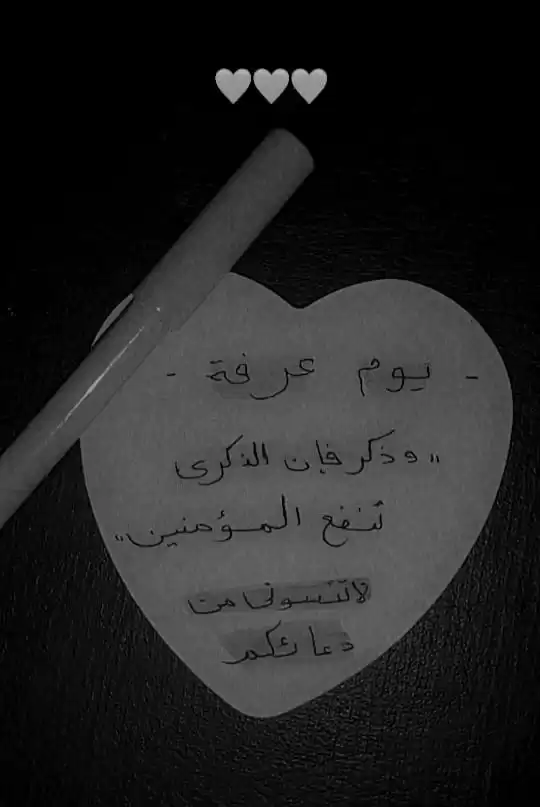 🤍🤍🤍
- يوم عرفة -
"وذكر فإن الذكرى
تنفع المؤمنين"
لا تنسوني من
دعائكم